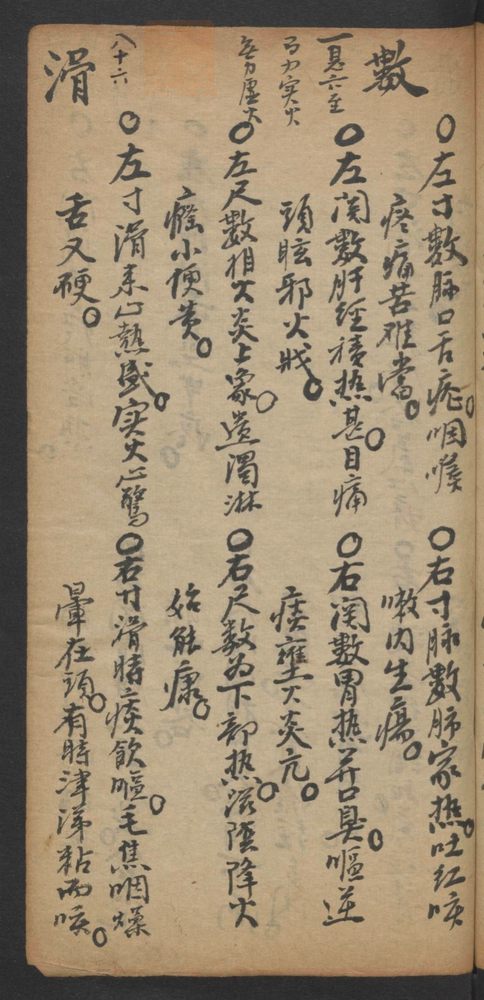 數
一息六至
有力实火
無力虚火
○左寸數脉口舌瘡○咽喉
疼痛苦难當○
○右寸脉數肺家热○吐红咳
嗽内生瘍○
○左関數肝經積热甚○目痛
頭眩邪火戕○
○右関數胃热并口臭○嘔逆
痰壅火炎亢○
○左尺數相火炎上象○遗濁淋
癃小便黄○
○右尺數为下部热○滋陰降火
始能康○
滑
八十六
○左寸滑来心熱盛○实火心驚
舌又硬○
○右寸滑時痰飲嘔○毛焦咽燥
暈在頭○有時津涕粘而咳○